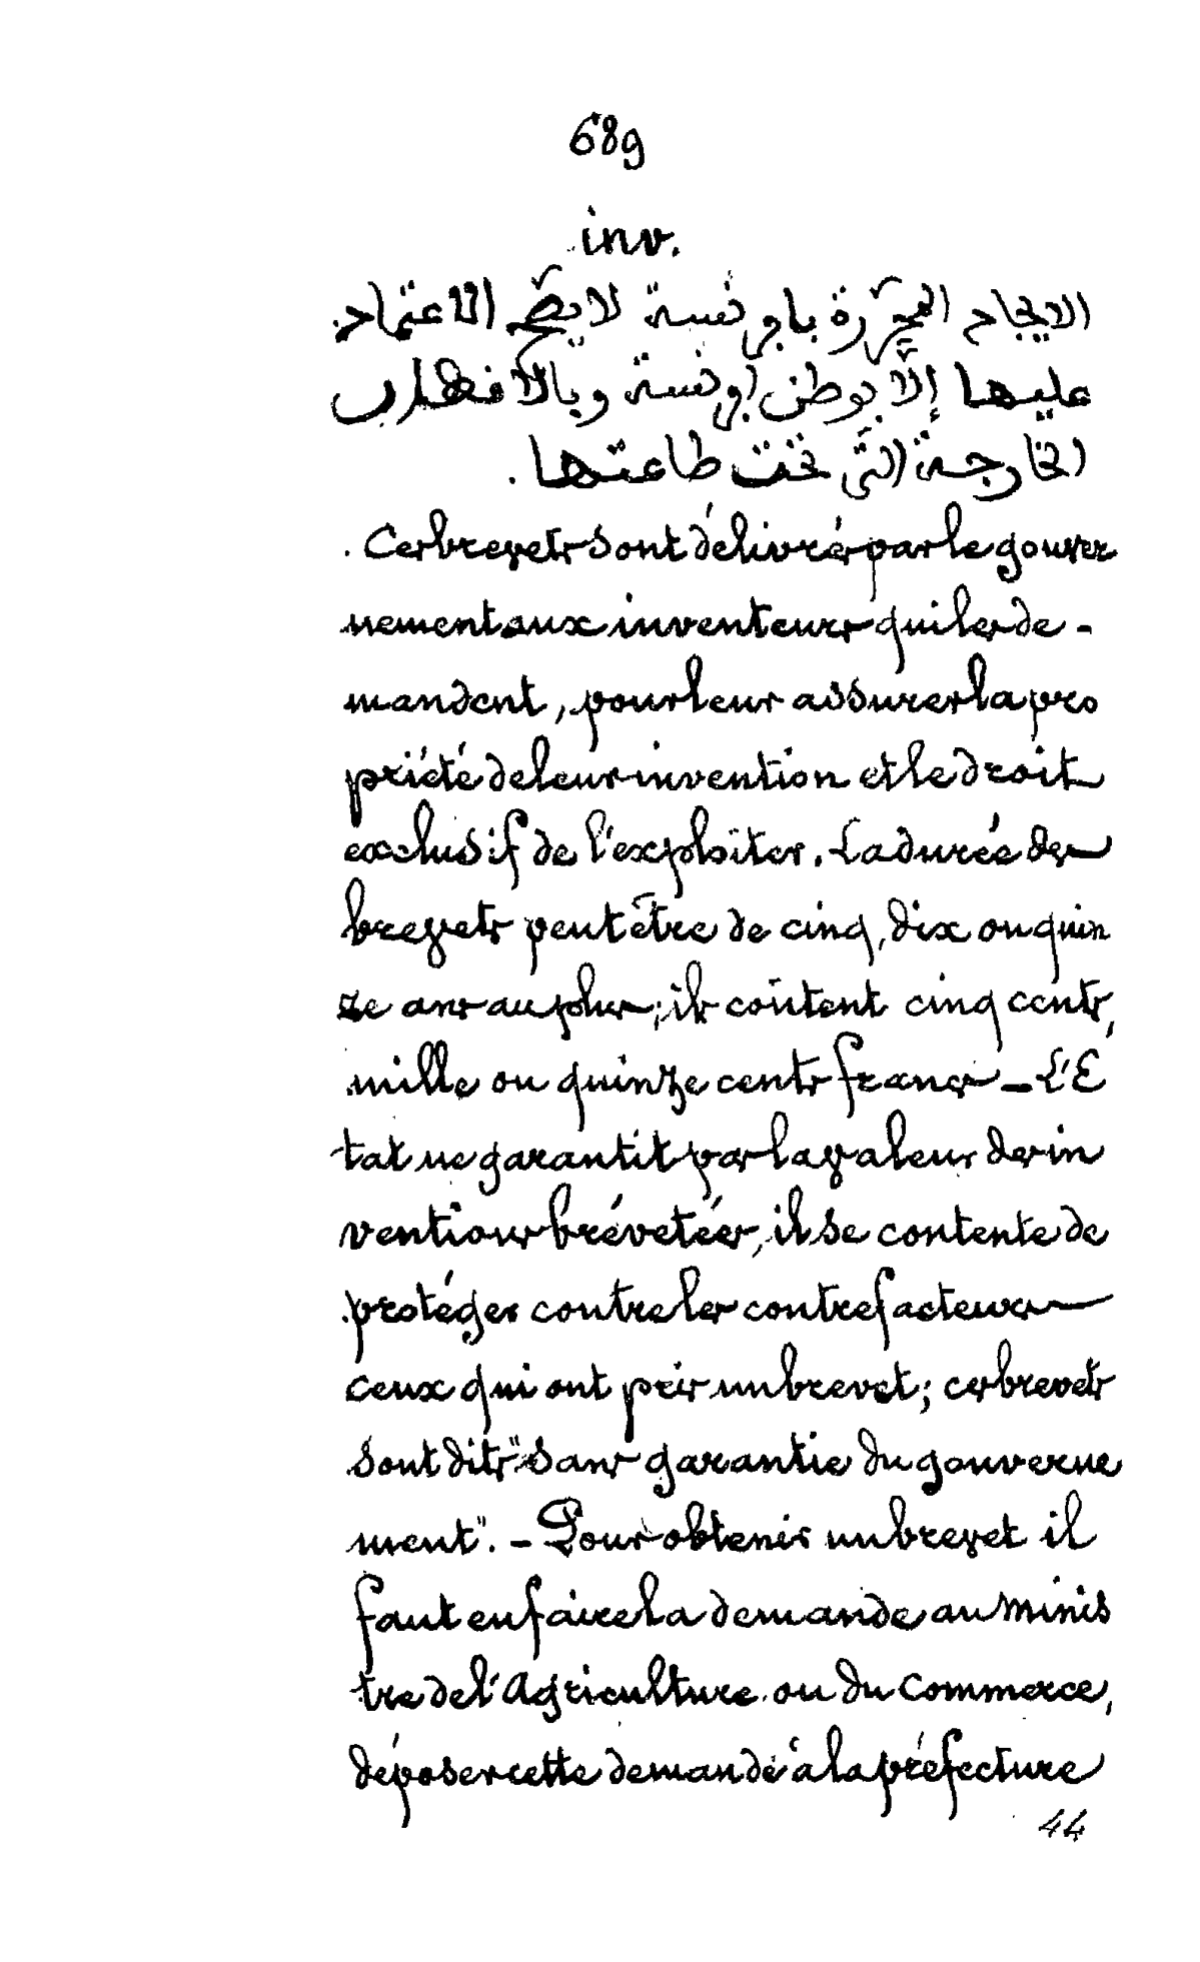 689
inv.
الايجاح المحرّرة بافرنسة لا يصحّ الاعتماد
عليها إلّا بوطن افرنسة وبالاقطار
الخارجة التي تحت طاعتها .
. Ces brevets sont délivrés par le gouver
nement aux inventeurs qui les de -
mandent, pour leur assurer la pro
priété de leur invention et le droit
exclusif de l'exploiter. La durée des
brevets peut être de cinq, dix ou quin
ze ans au plus; ils coûtent cinq cents,
mille ou quinze cents francs _ L'E
tat ne garantit pas la valeur des in
ventions brévetées, il se contente de
protéger contre les contrefacteurs
ceux qui ont pris un brevet; ces brevets
sont dits "sans garantie du gouverne
ment". - Pour obtenir un brevet il
faut en faire la demande au Minis
tre de l'Agriculture ou du Commerce,
déposer cette demande à la préfecture
44